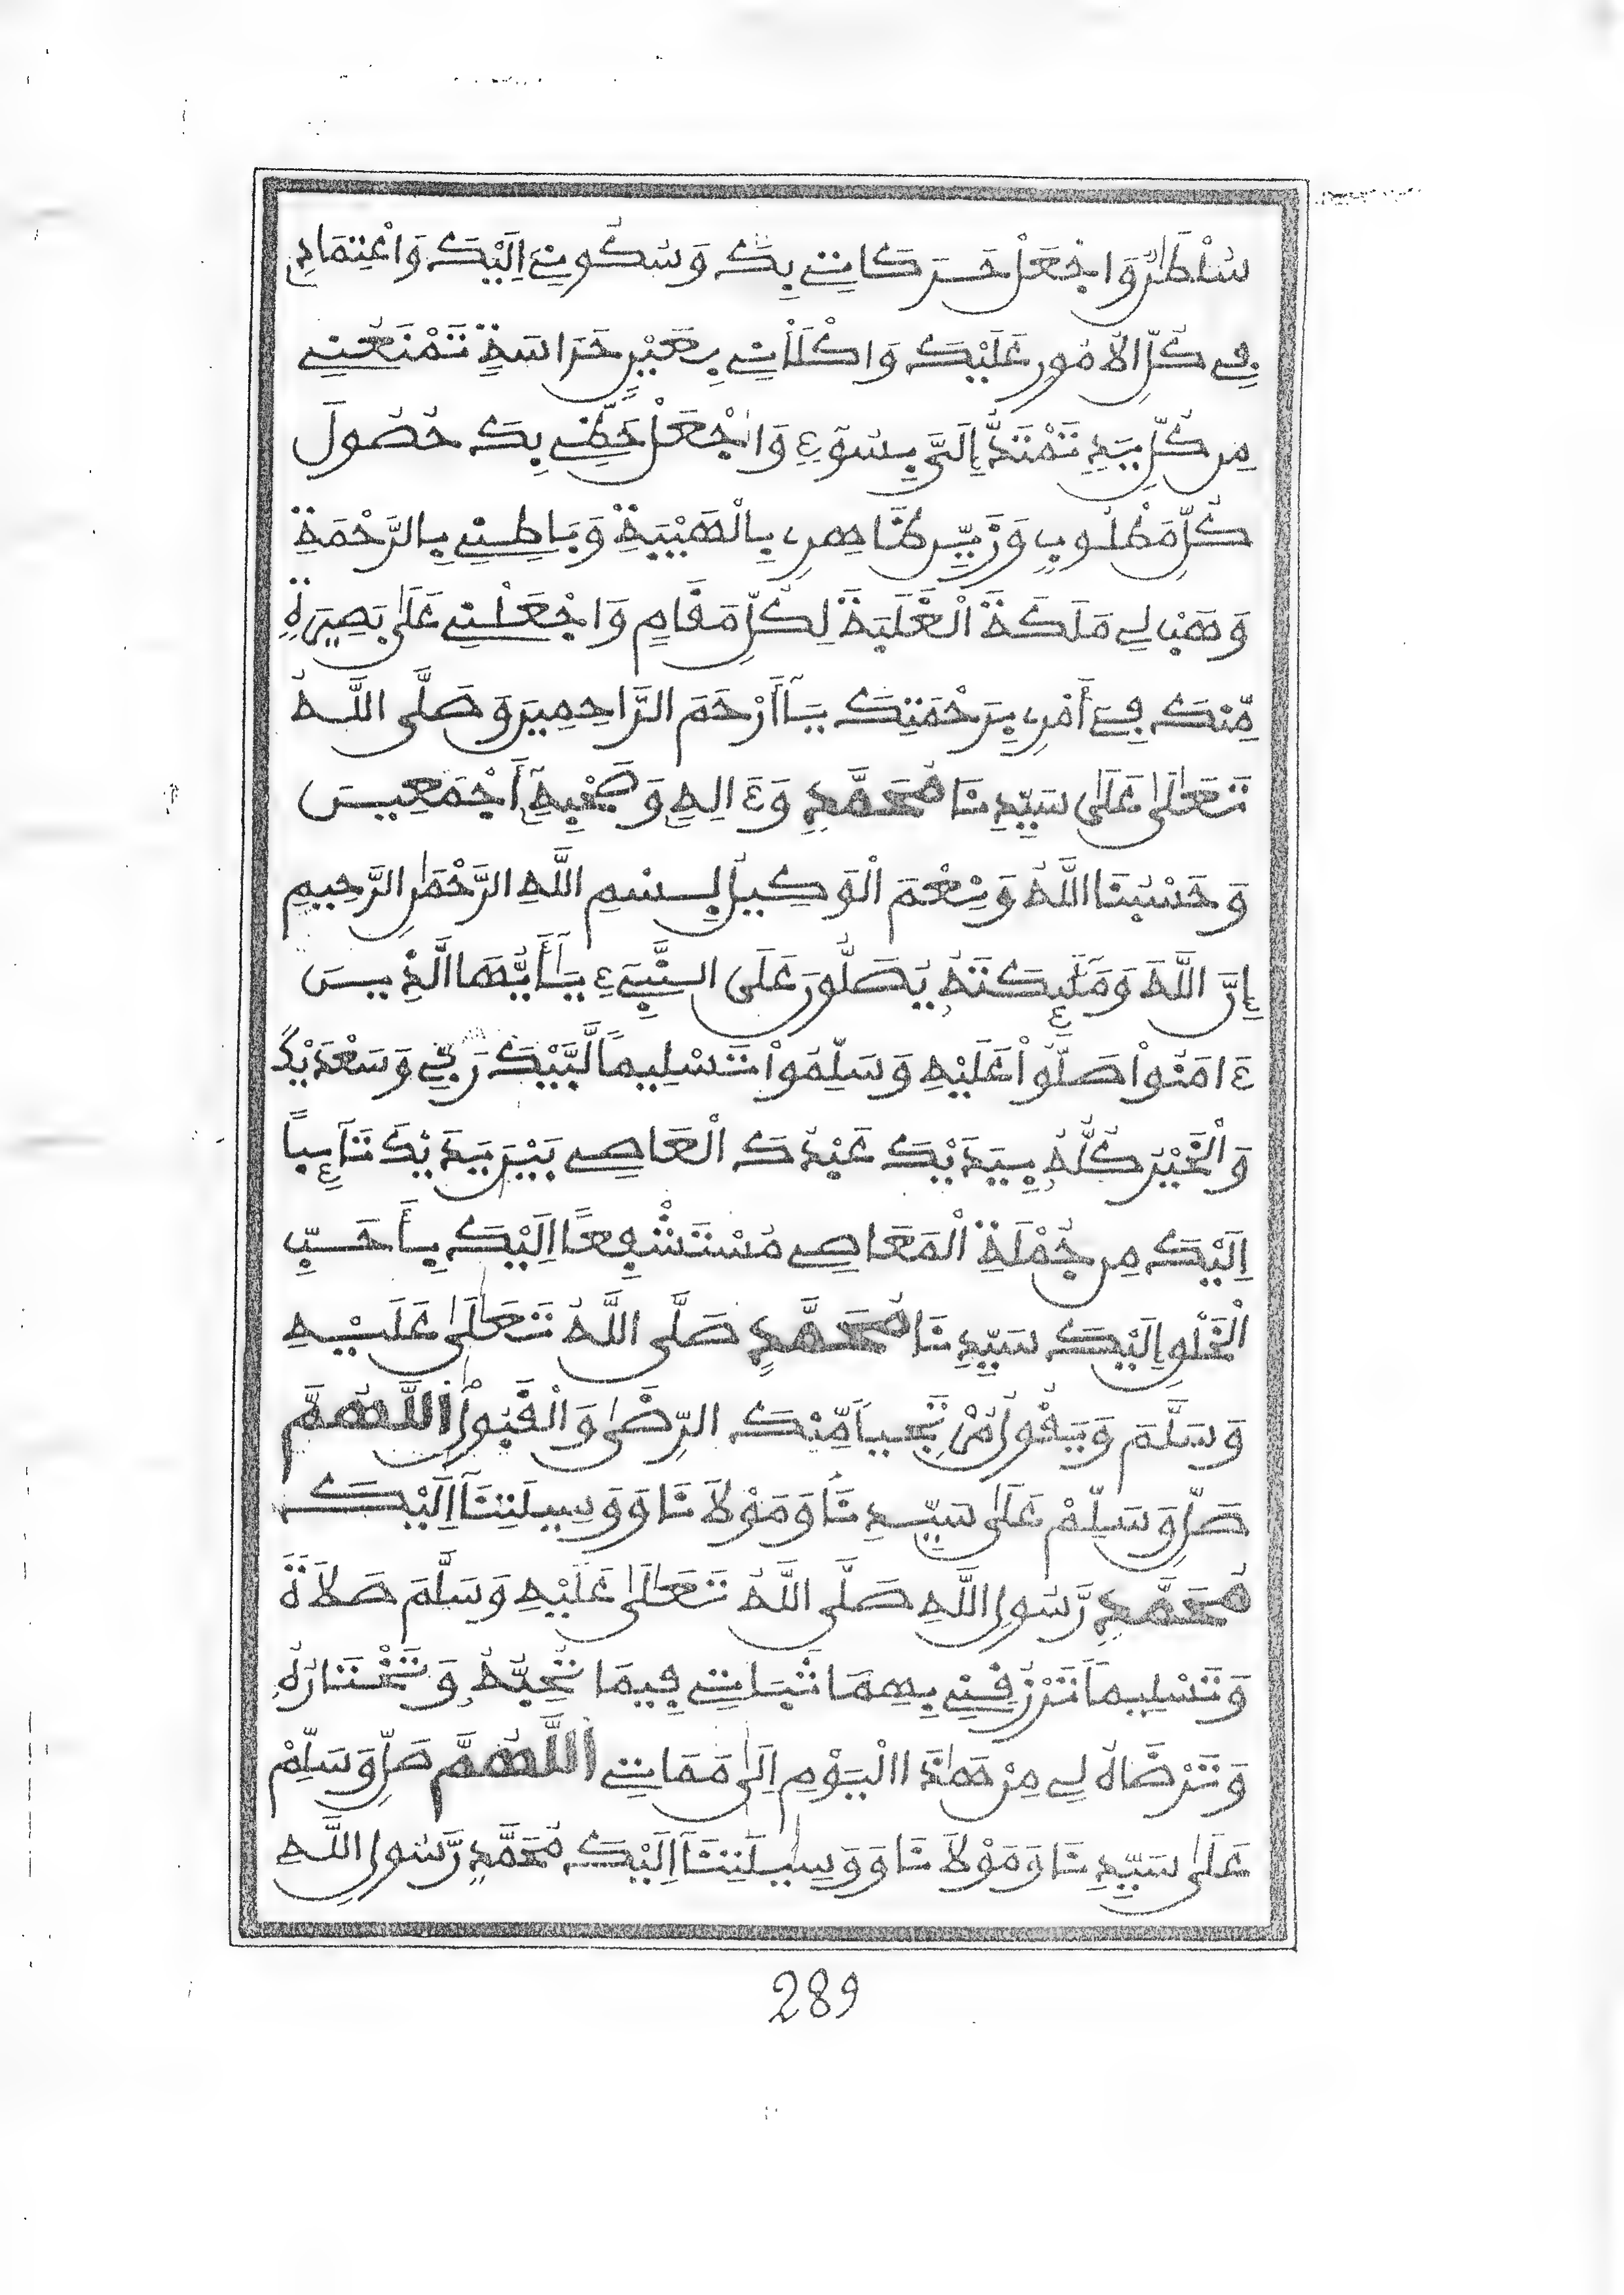 سُلْطَٰنٌ وَاجْعَلْ حَرَكَاتِي بِكَ وَسُكُونِي إِلَيْكَ وَاعْتِمَادِي
فِي كُلِّ الْأُمُورِ عَلَيْكَ وَاكْلَأْنِي بِعَيْنِ حَرَاسَةٍ تَمْنَعُنِي
مِن كُلِّ يَدٍ تَمْتَدُّ إِلَيَّ بِسُوٓءٍ وَاجْعَلْ حَظِّي بِكَ حُصُولَ
كُلِّ مَطْلُوبٍ وَزَيِّن ظَاهِرِي بِالْهَيْبَةِ وَبَاطِنِي بِالرَّحْمَةِ
وَهَبْ لِي مَلَكَةَ الْغَلَبَةِ لِكُلِّ مَقَامٍ وَاجْعَلْنِي عَلَىٰ بَصِيرَةٍ
مِّنكَ فِي أَمْرِي بِرَحْمَتِكَ يَآ أَرْحَمَ الرَّاحِمِينَ وَصَلَّى اللَّهُ
تَعَٰلَىٰ عَلَىٰ سَيِّدِنَا مُحَمَّدٍ وَءَالِهِ وَصَحْبِهِ أَجْمَعِينَ
وَحَسْبُنَا اللَّهُ وَنِعْمَ الْوَكِيلُ بِسْمِ اللَّهِ الرَّحْمَٰنِ الرَّحِيمِ
إِنَّ اللَّهَ وَمَلَٰٓئِكَتَهُ يُصَلُّونَ عَلَى النَّبِيٓءِ يَٰٓأَيُّهَا الَّذِينَ
ءَامَنُواْ صَلُّواْ عَلَيْهِ وَسَلِّمُواْ تَسْلِيماً لَّبَّيْكَ رَبِّي وَسَعْدَيْكَ
وَالْخَيْرُ كُلُّهُ بِيَدَيْكَ عَبْدُكَ الْعَاصِي بَيْنَ يَدَيْكَ تَآئِباً
إِلَيْكَ مِن جُمْلَةِ الْمَعَاصِي مُسْتَشْفِعًا إِلَيْكَ بِأَحَبِّ
الْخَلْقِ إِلَيْكَ سَيِّدِنَا مُحَمَّدٍ صَلَّى اللَّهُ تَعَٰلَىٰ عَلَيْهِ
وَسَلَّمَ وَيَقُولُ مُرْتَجِياً مِّنْكَ الرِّضَىٰ وَالْقَبُولَ اللَّهُمَّ
صَلِّ وَسَلِّمْ عَلَىٰ سَيِّدِنَا وَمَوْلَانَا وَوَسِيلَتِنَآ إِلَيْكَ
مُحَمَّدٍ رَّسُولِ اللَّهِ صَلَّى اللَّهُ تَعَٰلَىٰ عَلَيْهِ وَسَلَّمَ صَلَاةً
وَتَسْلِيماً تَرْزُقُنِي بِهِمَا ثَبَاتِي فِيمَا تُحِبُّهُ وَتَخْتَارُهُ
وَتَرْضَاهُ لِي مِنْ هَٰذَا الْيَوْمِ إِلَىٰ مَمَاتِي اللَّهُمَّ صَلِّ وَسَلِّمْ
عَلَىٰ سَيِّدِنَا وَمَوْلَانَا وَوَسِيلَتِنَآ إِلَيْكَ مُحَمَّدٍ رَّسُولِ اللَّهِ
289